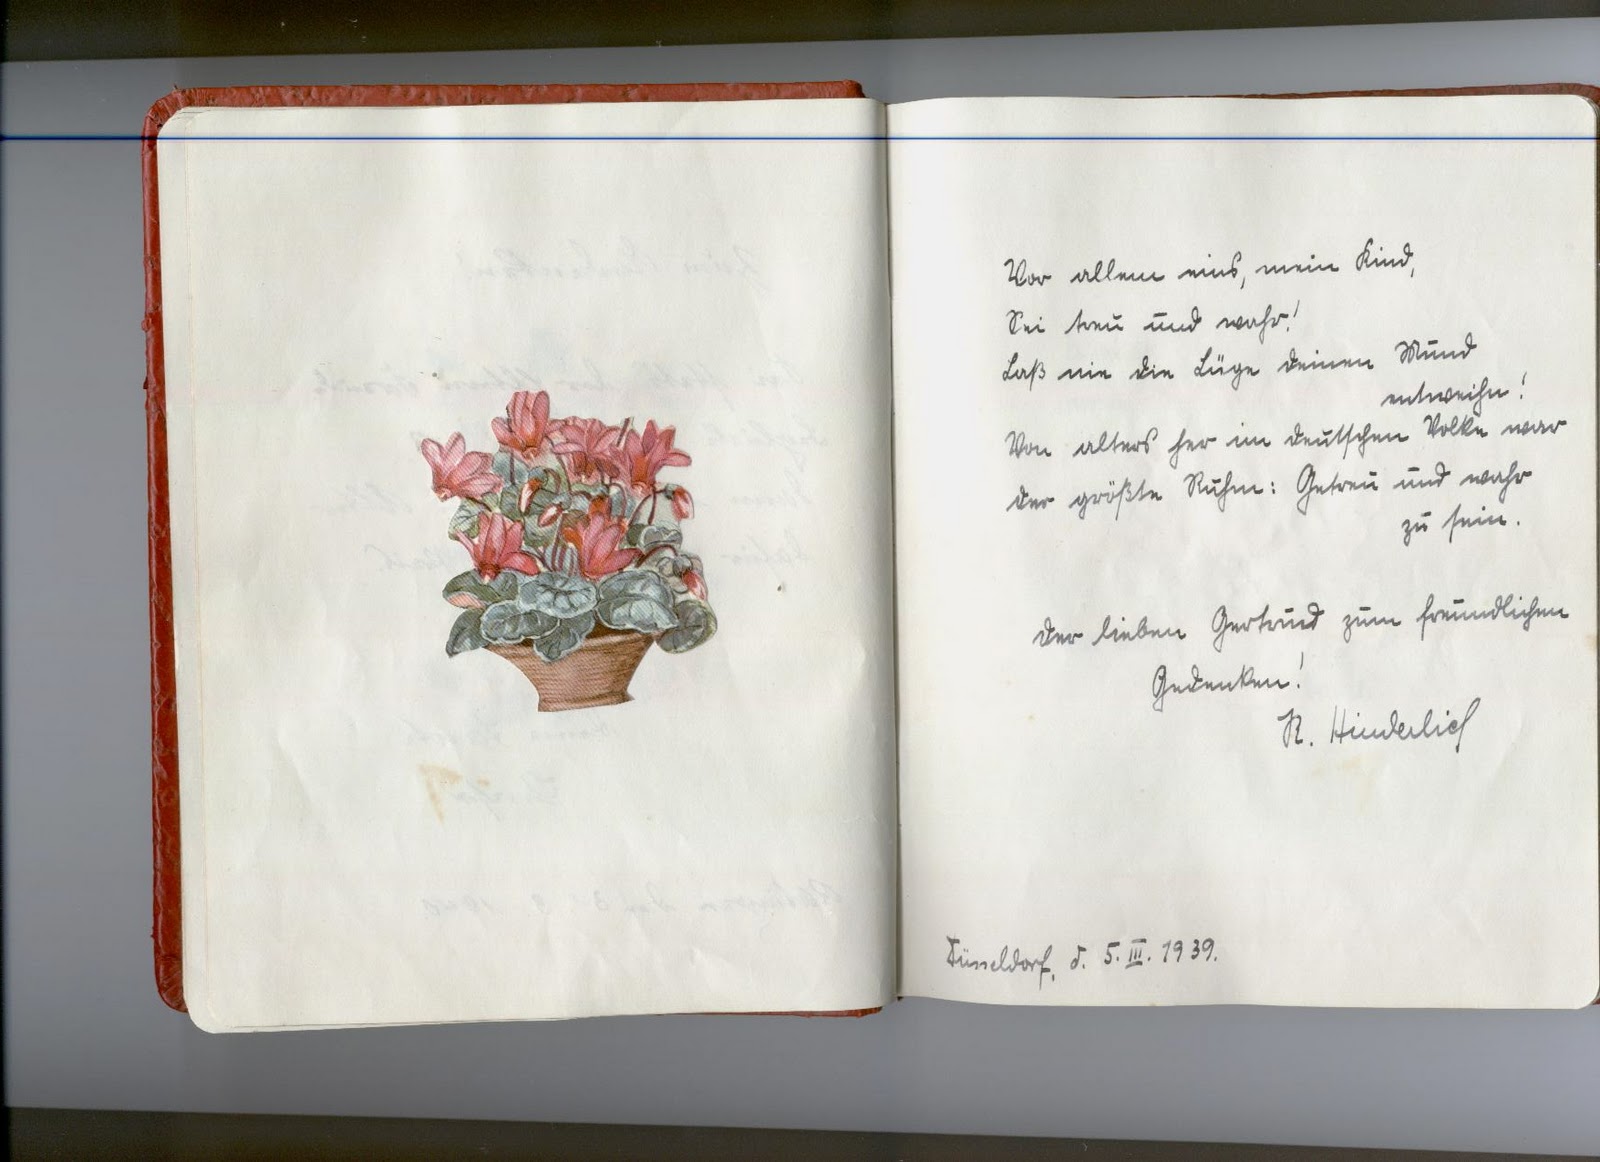 Vor allem eins, mein Kind,
Sei treu und wahr!
Laß nie die Lüge deinen Mund
entweihn!
Von alters her im deutschen Volke war
der größte Ruhm: Getreu und wahr
zu sein.
Der lieben Gertrud zum freundlichen
Gedenken!
R. Hinderlich
Düsseldorf, d. 5. III. 1939.